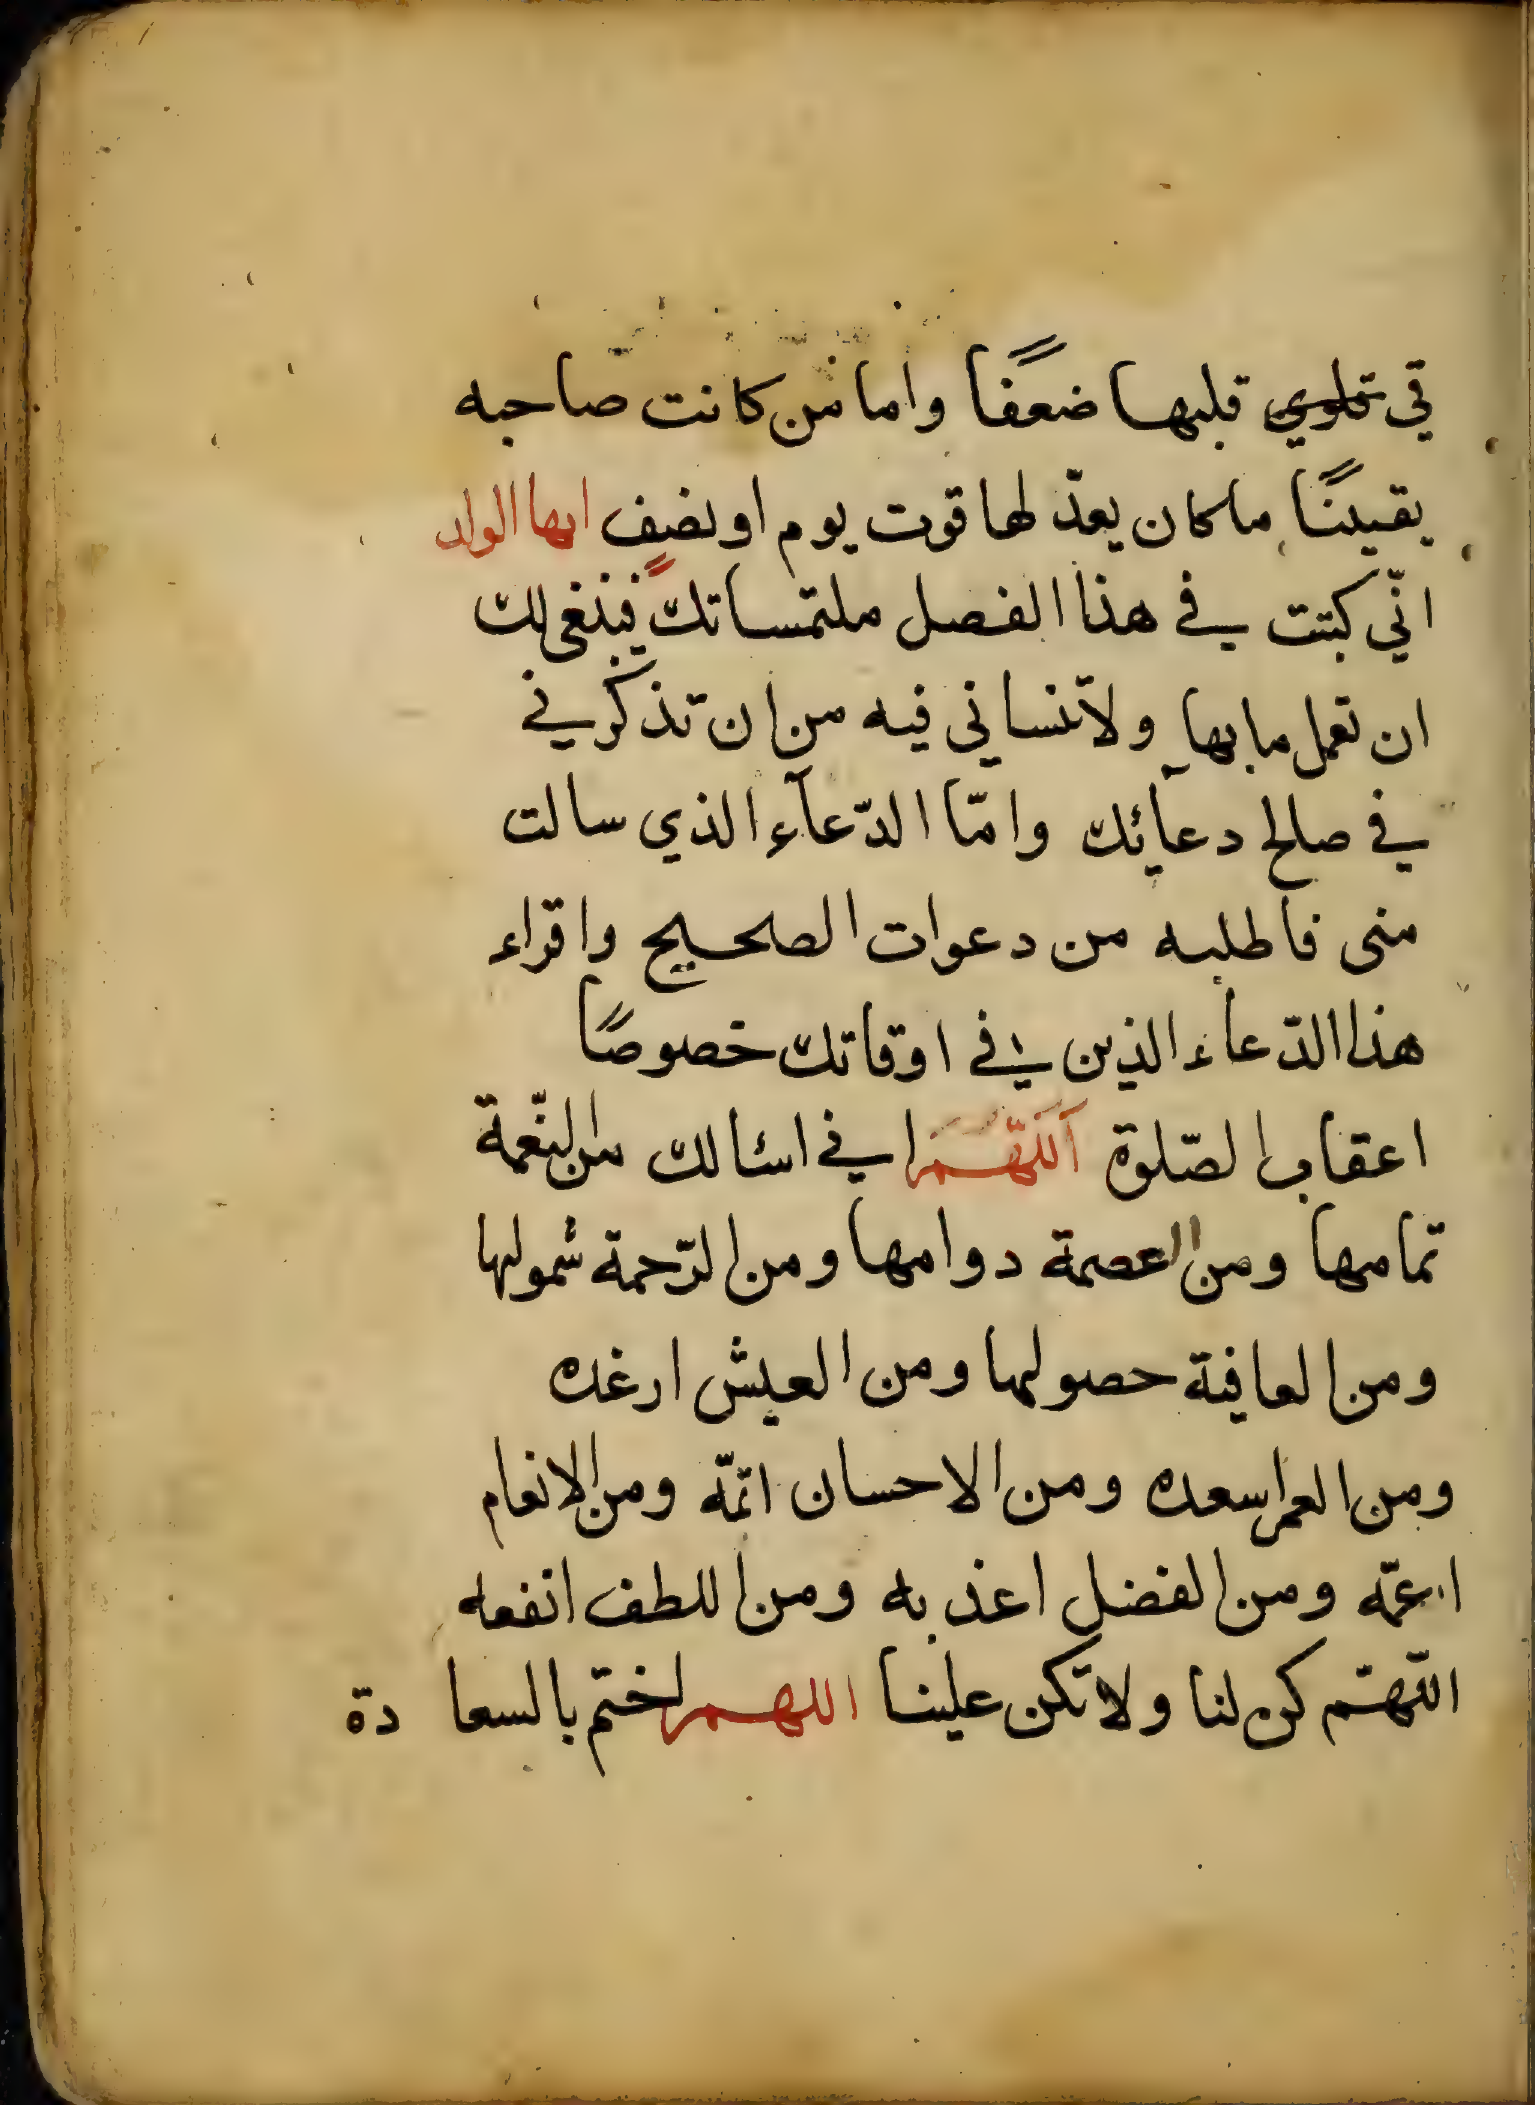 قي قلوي قلبها ضعفًا واما من كانت صاحبه
يقينًا ماكان يعدّ لها قوت يوم او نصف ايها الولد
انّي كتبت في هذا الفصل ملتمساتك فينبغي لك
ان تعمل مابها ولا تنساني فيه من ان تذكرني في
في صالح دعآئك وامّا الدّعآء الذي سالت
منى فاطلبه من دعوات الصحيح واقراء
هذا الدّعاء الذين في اوقاتك خصوصًا
اعقاب الصّلوة اَللّهُمَّ اني اسئالك من النّعمة
تمامها ومن العصمة دوامها ومن الرّحمة شمولها
ومن العافية حصولها ومن العيش ارغده
ومن العمر اسعده ومن الاحسان اتمّه ومن الانعام
اعمّه ومن الفضل اعذبه ومن اللطف انفعه
اللّهمّ كن لنا ولا تكن علينا اللهم اختم بالسعا دة